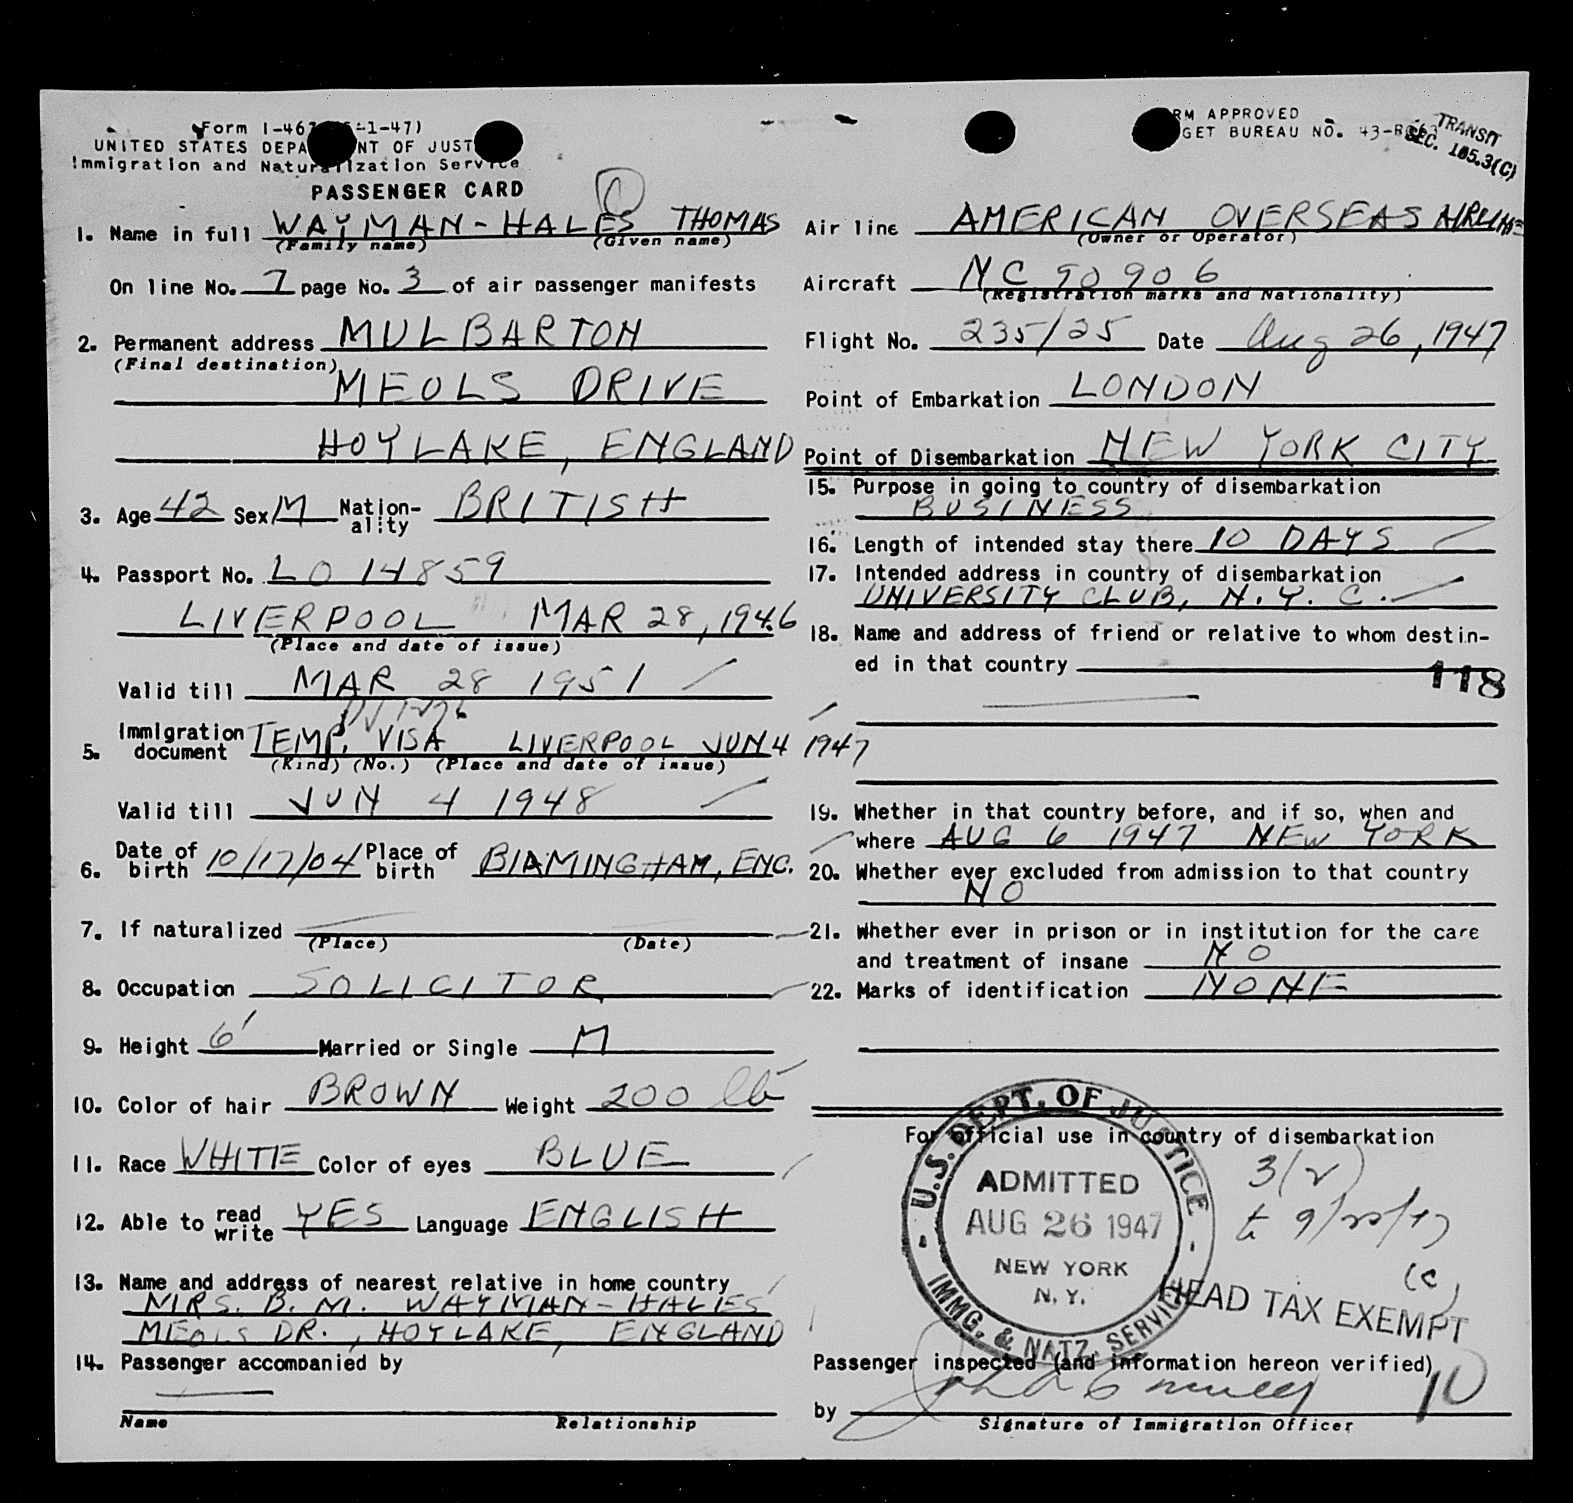 Form I-467 -1-47)
UNITED STATES DEPA NT OF JUST
Immigration and Naturalization Service
PASSENGER CARD
C
1. Name in full WAYMAN-HALES THOMAS
(Family name) (Given name)
On line No. 7 page No. 3 of air passenger manifests
2. Permanent address MULBARTON
(Final destination)
MEOLS DRIVE
HOYLAKE, ENGLAND
3. Age 42 Sex M Nation-ality BRITISH
4. Passport No. LO 14859
LIVERPOOL MAR 28, 1946
(Place and date of issue)
Valid till MAR 28 1951
5. Immigration document TEMP. VISA LIVERPOOL JUN 4 1947
(Kind) (No.) (Place and date of issue)
Valid till JUN 4 1948
6. Date of birth 10/17/04 Place of birth BIRMINGHAM, ENG.
7. If naturalized
(Place) (Date)
8. Occupation SOLICITOR
9. Height 6' Married or Single M
10. Color of hair BROWN Weight 200 lb
11. Race WHITE Color of eyes BLUE
12. Able to read write YES Language ENGLISH
13. Name and address of nearest relative in home country
MRS. B. M. WAYMAN-HALES
MEOLS DR., HOYLAKE, ENGLAND
14. Passenger accompanied by
Name Relationship
RM APPROVED
GET BUREAU NO. 43-R
TRANSIT
SEC. 105.3(C)
Air line AMERICAN OVERSEAS AIRLINE
(Owner or Operator)
Aircraft NC 90906
(Registration marks and Nationality)
Flight No. 235/25 Date Aug 26, 1947
Point of Embarkation LONDON
Point of Disembarkation NEW YORK CITY
15. Purpose in going to country of disembarkation
BUSINESS
16. Length of intended stay there 10 DAYS
17. Intended address in country of disembarkation
UNIVERSITY CLUB, N.Y.C.
18. Name and address of friend or relative to whom destin-
ed in that country
118
19. Whether in that country before, and if so, when and
where AUG 6 1947 NEW YORK
20. Whether ever excluded from admission to that country
NO
21. Whether ever in prison or in institution for the care
and treatment of insane NO
22. Marks of identification NONE
For official use in country of disembarkation
U.S. DEPT. OF JUSTICE
ADMITTED
AUG 26 1947
NEW YORK
N.Y.
IMMG. & NATZ. SERVICE
3(2)
(C)
HEAD TAX EXEMPT
Passenger inspected (and information hereon verified)
10
by
Signature of Immigration Officer